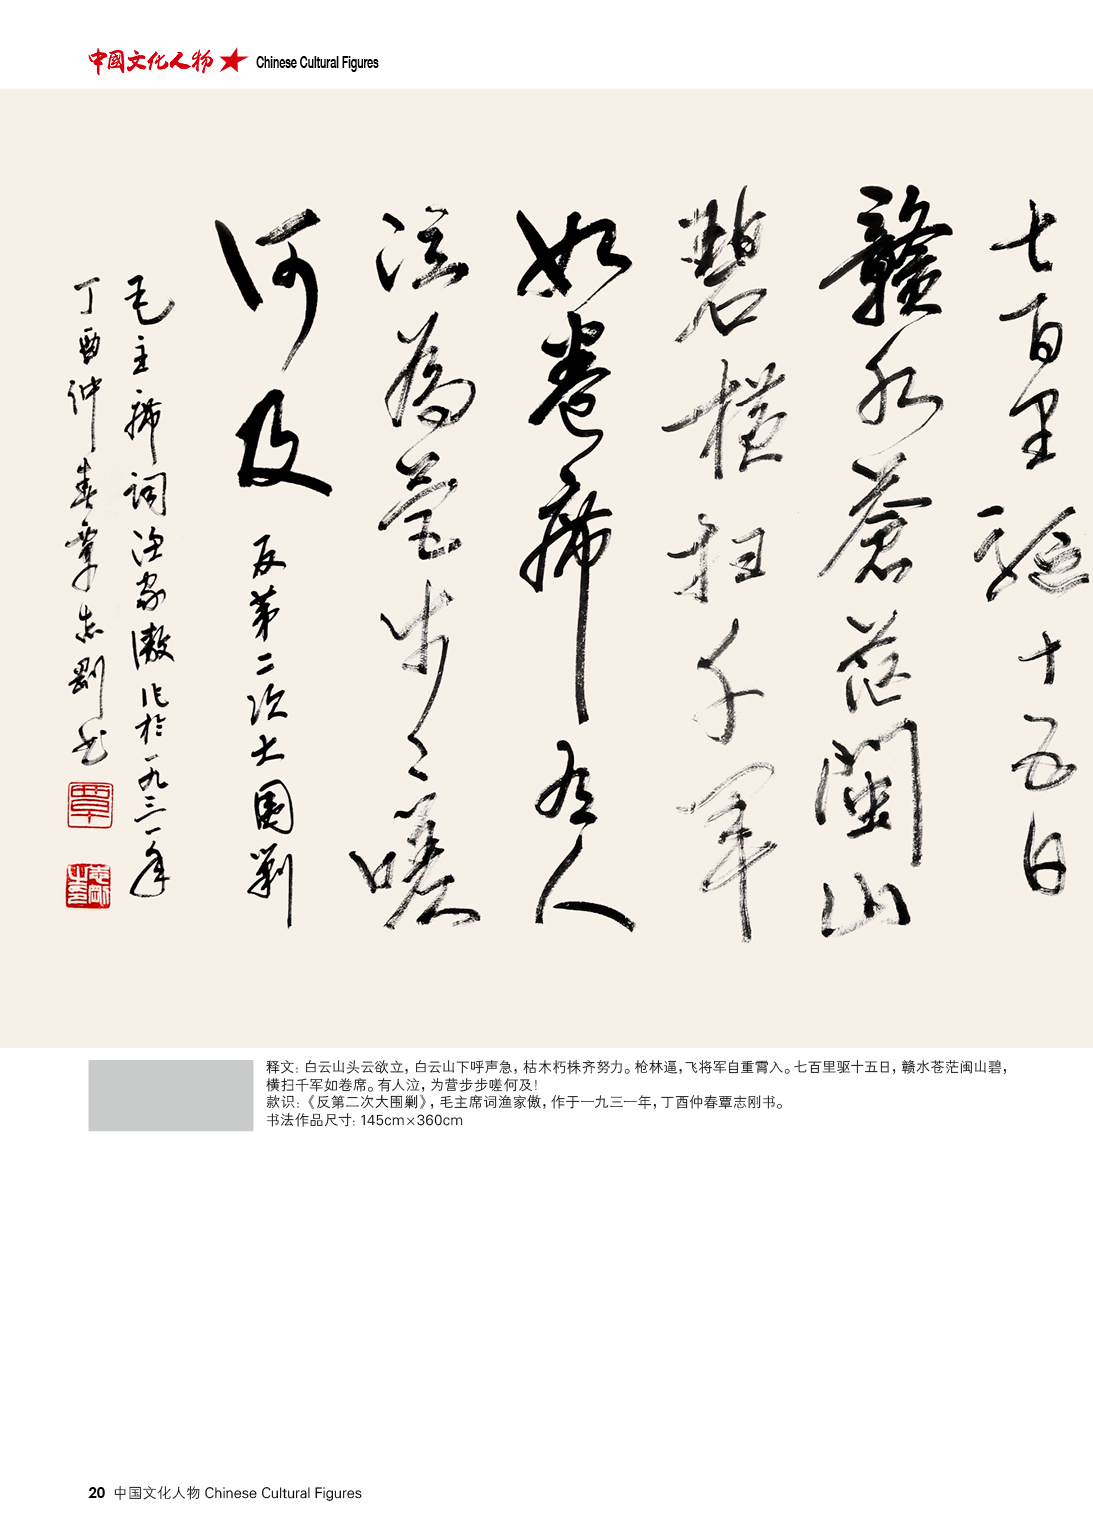 中國文化人物 Chinese Cultural Figures
七百里驱十五日
赣水蒼茫闽山
碧横扫千军
如卷席有人
泣為营步々嗟
何及
反第二次大围剿
毛主席词渔家傲作於一九三一年
丁酉仲春覃志刚书
覃
释文：白云山头云欲立，白云山下呼声急，枯木朽株齐努力。枪林逼，飞将军自重霄入。七百里驱十五日，赣水苍茫闽山碧，
横扫千军如卷席。有人泣，为营步步嗟何及！
款识：《反第二次大围剿》，毛主席词渔家傲，作于一九三一年，丁酉仲春覃志刚书。
书法作品尺寸：145cm×360cm
20 中国文化人物 Chinese Cultural Figures